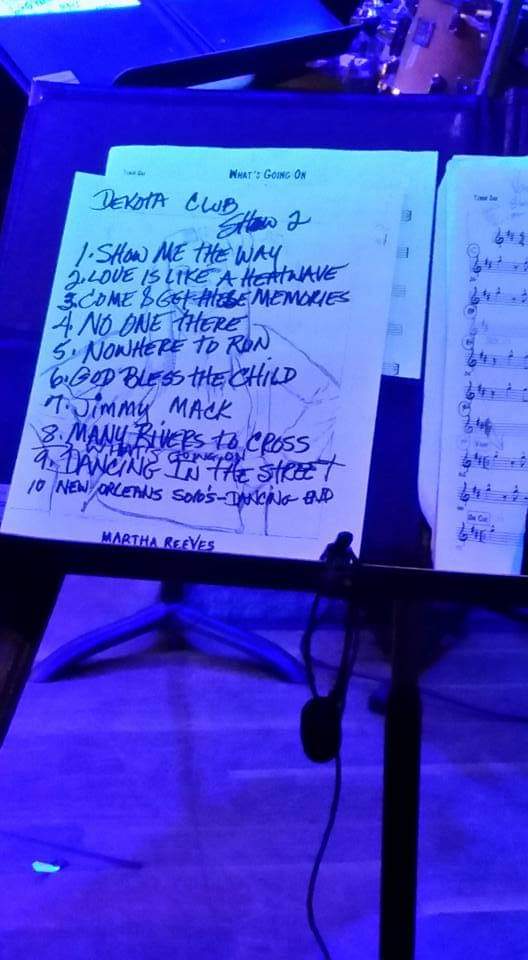 WHAT'S GOING ON
DEKOTA CLUB
SHOW 2
1. SHOW ME THE WAY
2. LOVE IS LIKE A HEATWAVE
3. COME & GET THESE MEMORIES
4 NO ONE THERE
5. NOWHERE TO RUN
6. GOD BLESS THE CHILD
7. JIMMY MACK
8. MANY RIVERS TO CROSS
WHAT'S GOING ON
9. DANCING IN THE STREET
10 NEW ORLEANS SOLO'S-DANCING END
MARTHA REEVES